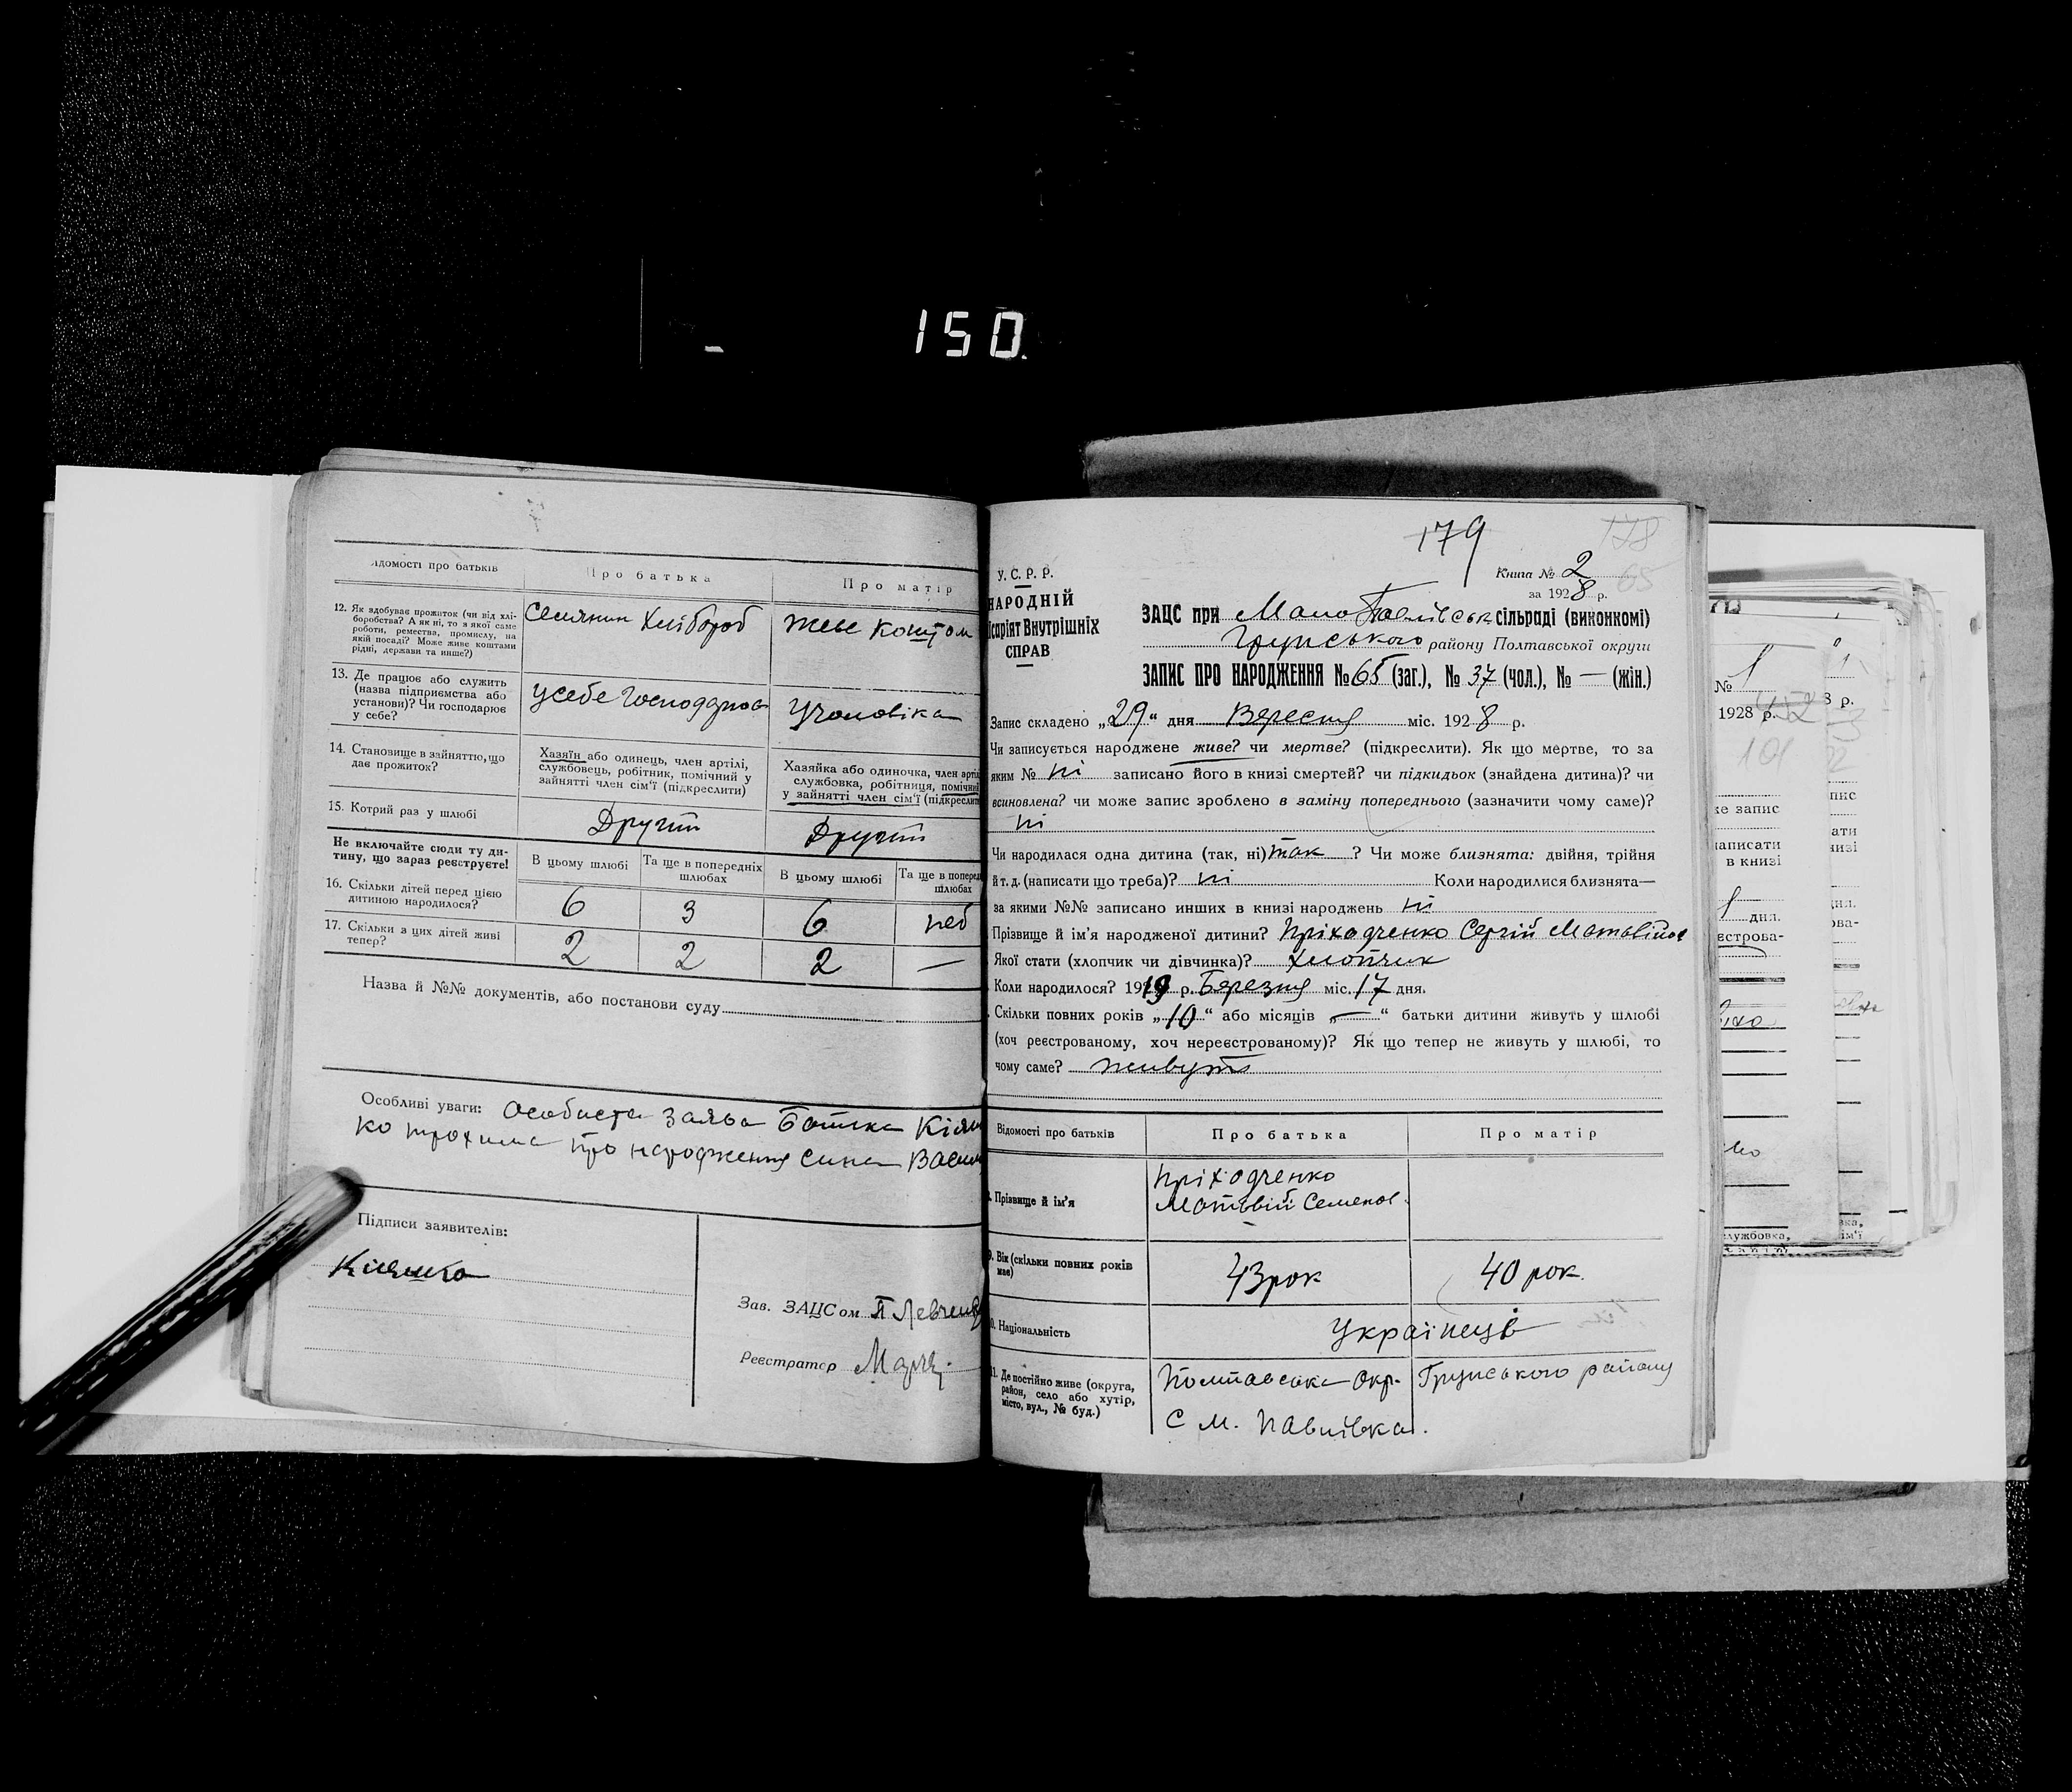 150.
Відомості про батьків
Про батька
Про матір
12. Як здобуває прожиток (чи від хлі-
боробства? А як ні, то з якої саме
роботи, ремества, промислу, на
якій посаді? Може живе коштами
рідні, держави та инше?)
Селянин Хлібороб
живе коштом
13. Де працює або служить
(назва підприємства або
установи)? Чи господарює
у себе?
у себе господарює
у чоловіка
14. Становище в зайняттю, що
дає прожиток?
Хазяїн або одинець, член артілі,
службовець, робітник, помічний у
зайнятті член сім'ї (підкреслити)
Хазяйка або одиночка, член артіл
службовка, робітниця, помічний
у зайнятті член сім'ї (підкреслити
15. Котрий раз у шлюбі
Другий
Другий
Не включайте сюди ту ди-
тину, що зараз реєструєте!
В цьому шлюбі
Та ще в попередніх
шлюбах
В цьому шлюбі
Та ще в поперед
шлюбах
16. Скільки дітей перед цією
дитиною народилося?
6
3
6
17. Скільки з цих дітей живі
тепер?
2
2
2
—
Назва й №№ документів, або постанови суду
Особливі уваги: Особиста заява Батька Кіяш
ко трохима про народження сина Васил
Підписи заявителів:
Кияшко
Зав. ЗАЦСом П Левченко
Реєстратор
179
178
У. С. Р. Р.
НАРОДНІЙ
ісаріят Внутрішніх
СПРАВ
Книга № 2
65
за 1928 р.
ЗАЦС при Мало Павлівськ сільраді (виконкомі)
Грунського району Полтавської округи
ЗАПИС ПРО НАРОДЖЕННЯ № 65 (заг.), № 37 (чол.), № — (жін.)
Запис складено „29“ дня Вересня міс. 1928 р.
Чи записується народжене живе? чи мертве? (підкреслити). Як що мертве, то за
яким № ні записано його в книзі смертей? чи підкидьок (знайдена дитина)? чи
всиновлена? чи може запис зроблено в заміну попереднього (зазначити чому саме)?
ні
Чи народилася одна дитина (так, ні) так ? Чи може близнята: двійня, трійня
й т. д. (написати що треба)? ні Коли народилися близнята—
за якими №№ записано инших в книзі народжень ні
Прізвище й ім'я народженої дитини? Пріходченко Сергій Матвійов
Якої стати (хлопчик чи дівчинка)? Хлопчик
Коли народилося? 1919 р. Березня міс. 17 дня.
Скільки повних років „10“ або місяців „—“ батьки дитини живуть у шлюбі
(хоч реєстрованому, хоч нереєстрованому)? Як що тепер не живуть у шлюбі, то
чому саме? живуть
Відомості про батьків
Про батька
Про матір
Прізвище й ім'я
Пріходченко
Матьвій Семенов.
9. Вік (скільки повних років
має)
43 рок
40 рок.
0. Національність
Українців
1. Де постійно живе (округа,
район, село або хутір,
місто, вул., № буд.)
Полтавська Окр. Грунського району
С М. Павлівка.
№ 1
1928 р.
3 р.
101
же запис
написати
в книзі
дня.
єстрова-
службовка,
пис
ати
низі
дня.
ова-
вка,
ім'ї